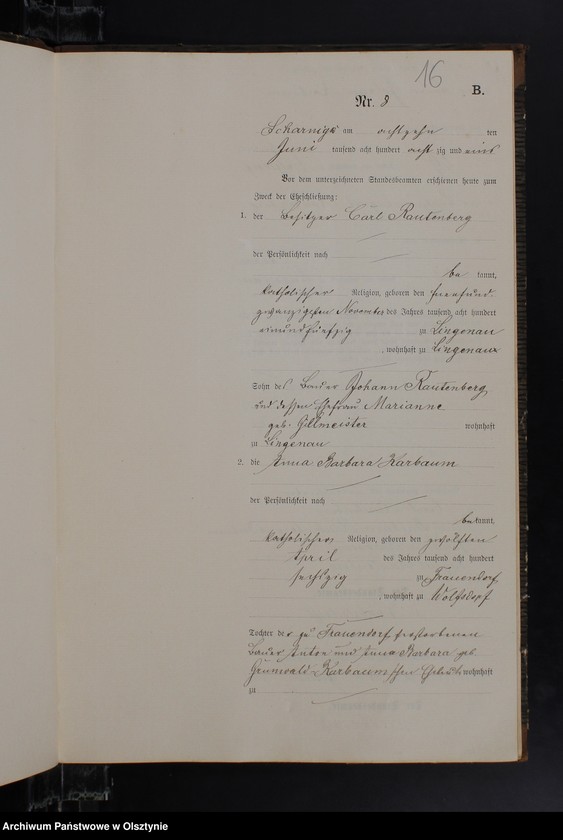 16
B.
Nr. 8
Scharnigk am achtzehn ten
Juni tausend acht hundert acht zig und eins
Vor dem unterzeichneten Standesbeamten erschienen heute zum
Zweck der Eheschließung:
1. der Besitzer Carl Rautenberg
der Persönlichkeit nach
be kannt,
katholischer Religion, geboren den fuenfund
zwanzigsten November des Jahres tausend acht hundert
einundfünfzig zu Lingenau
, wohnhaft zu Lingenau
Sohn des Bauer Johann Rautenberg
und dessen Ehefrau Marianne
geb. Gillmeister wohnhaft
zu Lingenau
2. die Anna Barbara Karbaum
der Persönlichkeit nach
bekannt,
katholischer Religion, geboren den zwölften
April des Jahres tausend acht hundert
sechszig zu Frauendorf
, wohnhaft zu Wolfsdorf
Tochter der zu Frauendorf verstorbenen
Bauer Anton und Anna Barbara geb
Grunwald Karbaum'schen Eheleute wohnhaft
zu
Archiwum Państwowe w Olsztynie